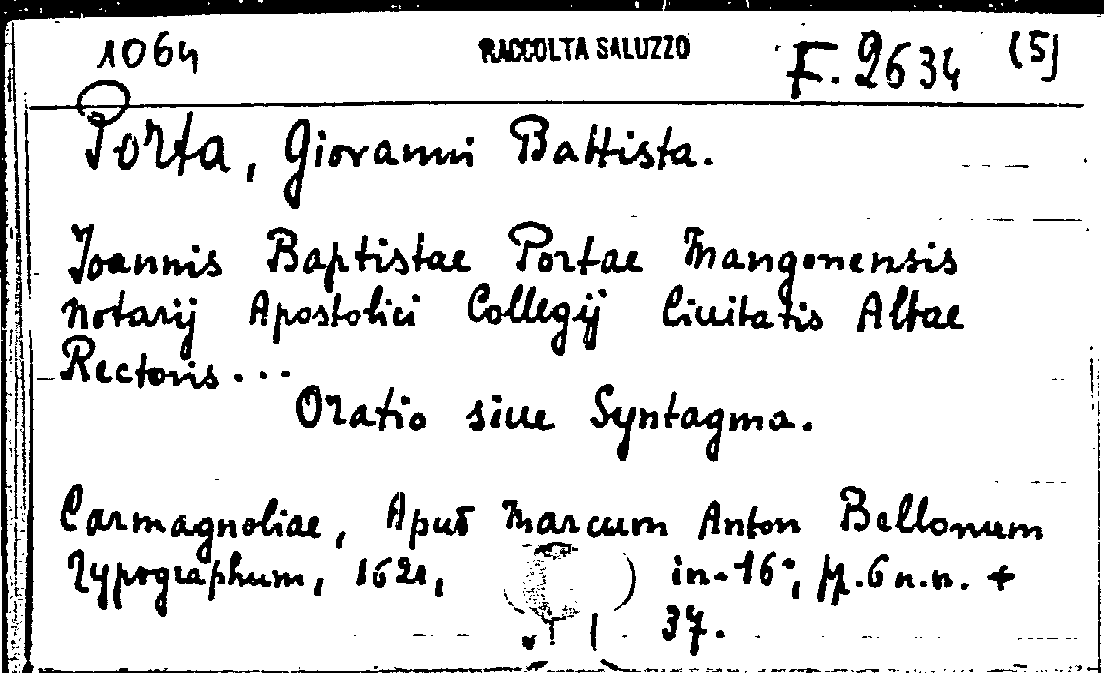 1064 RACCOLTA SALUZZO F. 2634 (5)
Porta, Giovanni Battista.
Joannis Baptistae Portae Mangonensis
notarij Apostolici Collegij Civitatis Albae
Rectoris...
Oratio siue Syntagma.
Carmagnoliae, Apud Marcum Anton Bellonum
Typographum, 1621, in-16°, pp. 6 n.n. +
37.